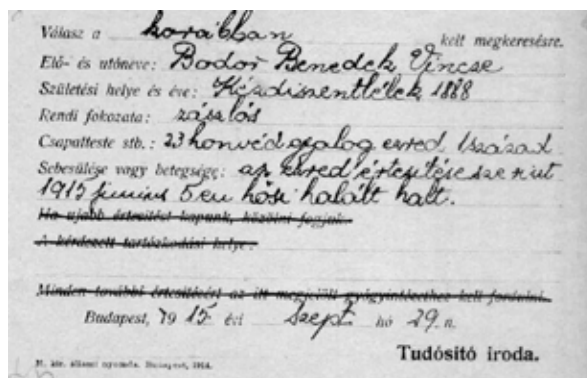 Válasz a korábban kelt megkeresésre.
Elő- és utóneve: Bodor Benedek Vincze
Születési helye és éve: Kézdiszentlélek 1888
Rendi fokozata: zászlós
Csapatteste stb.: 23 honvéd gyalog ezred 1 század
Sebesülése vagy betegsége: az ezred értesítése szerint
1915 junius 5 en hősi halált halt.
Ha ujabb értesítést kapunk, közölni fogjuk.
A kérdezett tartózkodási helye:
Minden további értesítésért az itt megjelölt gyógyintézethez kell fordulni.
Budapest, 1915 évi Szept hó 29. n.
Tudósító iroda.
M. kir. állami nyomda. Budapest, 1914.